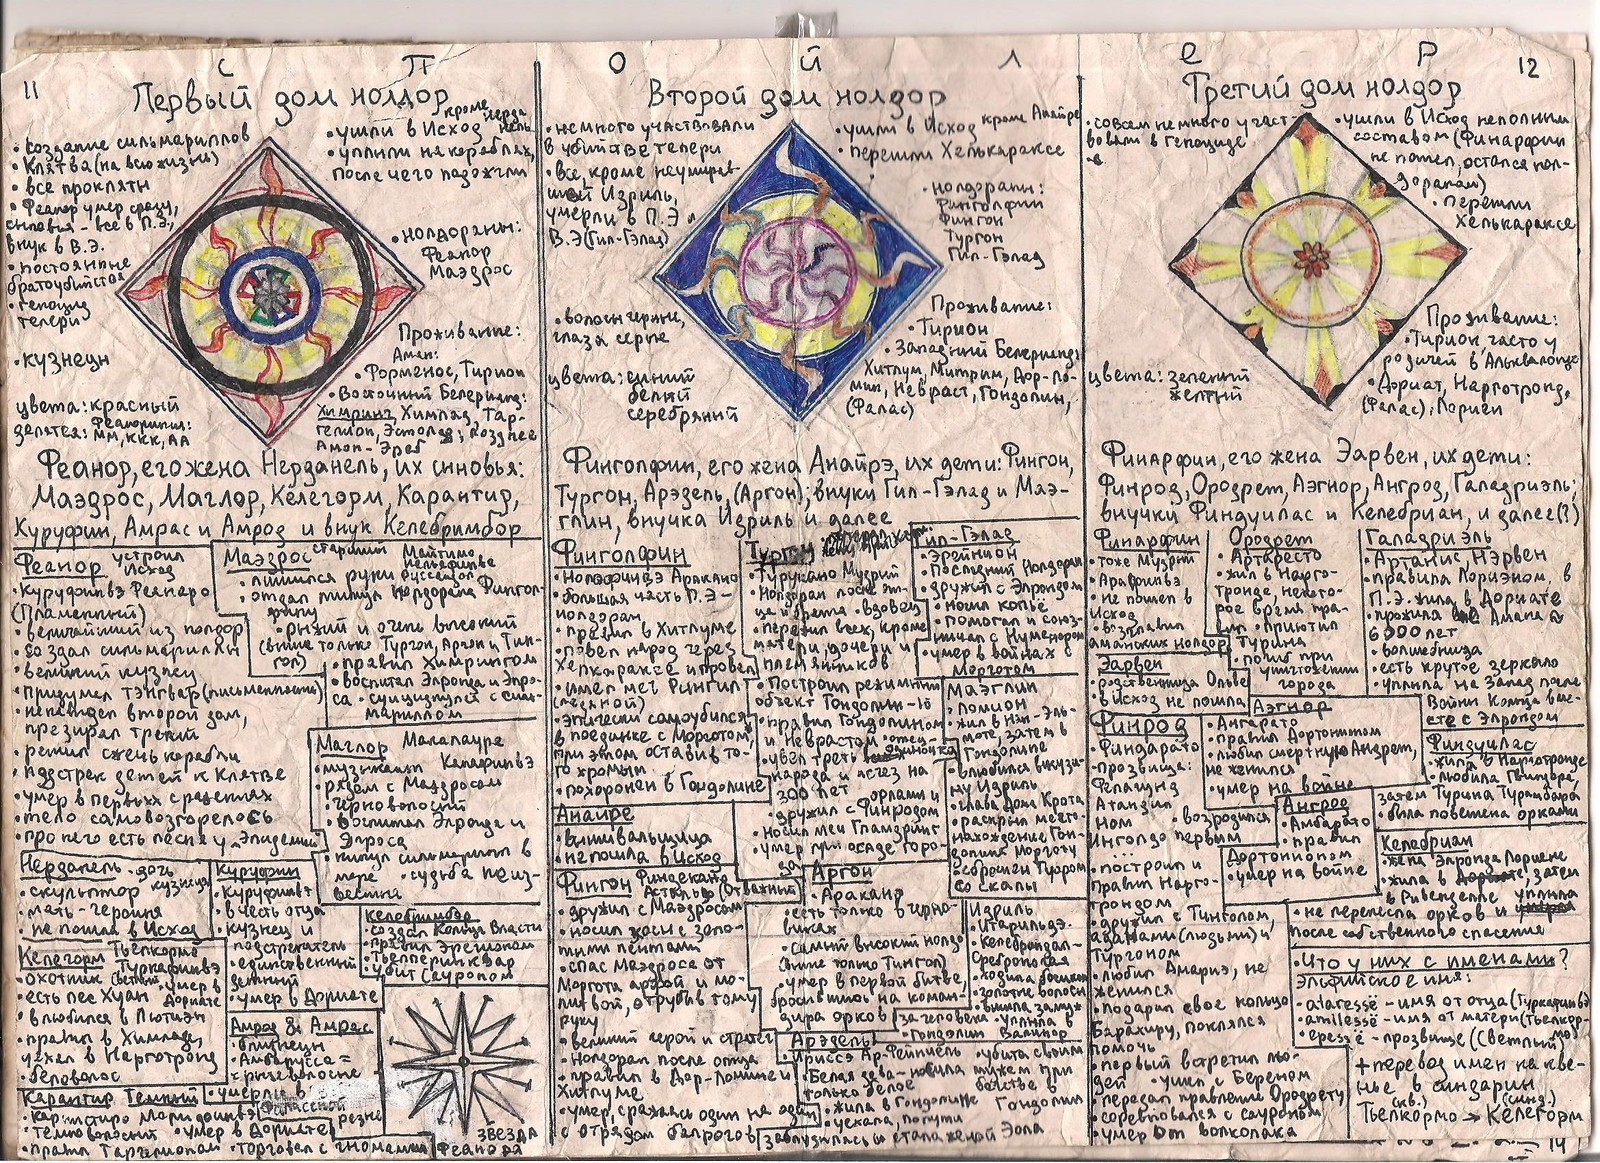 СПОЙЛЕР
11
Первый дом нолдор
• создание сильмариллов
• Клятва (на всю жизнь)
• все прокляты
• Феанор умер сразу,
сыновья - все в П.Э.,
внук в В.Э.
• постоянные
братоубийства
• геноцид
телери
• кузнецы
цвета: красный
делятся: Феанорики:
ММ, ККК, АА
• ушли в Исход кроме Нерданель
• уплыли на кораблях,
после чего подожгли
• нолдораны:
Феанор
Маэдрос
Проживание:
Аман:
• Форменос, Тирион
• Восточный Белерианд:
Химринг, Химлад, Тар-
гелион, Эстолад; позднее
Амон-Эреб
Феанор, его жена Нерданель, их сыновья:
Маэдрос, Маглор, Келегорм, Карантир,
Куруфин, Амрас и Амрод и внук Келебримбор
Феанор устроил
Исход
• Куруфинвэ Феанаро
(Пламенный)
• величайший из нолдор
• создал сильмариллы
• великий кузнец
• придумал тэнгвар (письменность)
• ненавидел второй дом,
презирал третий
• решил сжечь корабли
• подстрек детей к Клятве
• умер в первых сражениях
• тело самовозгорелось
• про него есть песня у Эпидемии
Маэдрос старший Майтимо
Нельяфинвэ
Руссандол
• лишился руки
• отдал титул нолдорана Финголфину
• рыжий и очень высокий
(выше только Тургон, Аргон и Тин-
гол)
• правил Химрингом
• воспитал Элронда и Элро-
са
• суициднулся с силь-
мариллом
Маглор Макалаурэ
Канафинвэ
• музыкант
• рядом с Маэдросом
• черноволосый
• воспитал Элронда и
Элроса
• кинул сильмарилл в
море • судьба неиз-
вестна
Нерданель - дочь
кузнеца
• скульптор
• мать-героиня
• не пошла в Исход
Куруфин
• Куруфинвэ
• в честь отца
• кузнец и
подстрекатель
• единственный
женатый
• умер в Дориате
Келебримбор
• создал Кольца Власти
• правил Эрегионом
• Тьелперинквар
• убит Сауроном
Келегорм Тьелкормо
Туркафинвэ
• охотник Светлый • умер в
Дориате
• есть пёс Хуан
• влюбился в Лютиэн
• правил в Химладе,
уехал в Нарготронд
• беловолос
Амрод & Амрас
• близнецы
• Амбарусса =
= рыжеволосые
• умерли в
резне
Карантир Темный
• Карнистиро Морифинвэ
• темноволосый • умер в Дориате
• правил Таргелионом • торговал с гномами
Звезда
Феанора
Второй дом нолдор
• немного участвовали
в убийстве телери
• все, кроме неумирев-
шей Идриль,
умерли в П.Э и
В.Э (Гил-Гэлад)
• волосы черные,
глаза серые
цвета: синий
белый
серебряный
• ушли в Исход кроме Анайрэ
• перешли Хелькараксе
• нолдораны:
Финголфин
Фингон
Тургон
Гил-Гэлад
Проживание:
• Тирион
• Западный Белерианд:
Хитлум, Митрим, Дор-Ло-
мин, Невраст, Гондолин,
(Фалас)
Финголфин, его жена Анайрэ, их дети: Фингон,
Тургон, Арэдель, (Аргон); внуки Гил-Гэлад и Маэ-
глин, внучка Идриль и далее
Финголфин
• Нолофинвэ Аракано
• большая часть П.Э -
нолдоран
• правил в Хитлуме
• повел народ через
Хелкараксе и провел
• имел меч Рингил
(ледяной)
• эпически самоубился
в поединке с Морготом,
при этом оставив то-
го хромым
• похоронен в Гондолине
Анайре
• вышивальщица
• не пошла в Исход
Фингон Финдекано
Астальдо (Отважный)
• дружил с Маэдросом
• носил косы с золо-
тыми лентами
• спас Маэдроса от
Моргота арфой и мо-
литвой, отрубив тому
руку
• великий герой и стратег
• Нолдоран после отца
• правил в Дор-Ломине и
Хитлуме
• умер, сражаясь один на один
с отрядом балрогов
Тургон
• Турукано Мудрый
• Нолдоран после от-
ца и брата • вдовец
• пережил всех, кроме
матери, дочери и
племянников
• Построил режимный
объект Гондолин-10
• правил Гондолином
и Неврастом • отец-
одиночка
• увел треть
народа и исчез на
300 лет
• дружил с орлами и
Финродом
• носил меч Гламдринг
• умер при осаде горо-
да
Гил-Гэлад
• Эрейнион
• Последний Нолдоран
• дружил с Элрондом
• носил копьё
• помогал и союз-
ничал с Нуменором
• умер в войнах с
Морготом
Маэглин
• Ломион
• жил в Нан-Эль-
моте, затем в
Гондолине
• влюбился в кузи-
ну Идриль
• глава Дома Крота
• раскрыл место-
нахождение Гон-
долина Морготу
• сброшен Туором
со скалы
Аргон
• Аракано
• есть только в черно-
виках
• самый высокий нолдо
(выше только Тингол)
• умер в первой битве,
бросившись на коман-
дира орков
Идриль
• Итарильдэ
• Келебриндал -
Среброногая
• ходила босиком
• золотые волосы
• вышла замуж
за человека • уплыла в
Валинор
Арэдель • Гондолин
• Ириссэ Ар-Фейниель
• Белая дева - носила
только белое
• жила в Гондолине
• уехала, попутн
заблудилась и стала женой Эола
• убита своим
мужем при
бегстве в
Гондолин
12
Третий дом нолдор
• совсем немного участ-
вовали в геноциде
• ушли в Исход неполным
составом (Финарфин
не пошел, остался нол-
дораном)
• перешли
Хелькараксе
цвета: зеленый
желтый
Проживание:
• Тирион, часто у
родичей в Альквалондэ
• Дориат, Нарготронд,
(Фалас), Лориен
Финарфин, его жена Эарвен, их дети:
Финрод, Ородрет, Аэгнор, Ангрод, Галадриэль;
внучки Финдуилас и Келебриан, и далее(?)
Финарфин
• тоже мудрый
• Арафинвэ
• не пошел в
Исход
• возглавил
аманских нолдор
Эарвен
• родственница Ольвэ
• в Исход не пошла
Финрод
• Финдарато
• прозвища:
Фелагунд
Атандил
Ном
Инголдо
• возродился
первым
• построил и
правил Нарго-
трондом
• дружил с Тинголом,
аданами (людьми) и
Тургоном
• любил Амариэ, не
женился
• подарил свое кольцо
Барахиру, поклялся
помочь
• первый встретил лю-
дей • ушел с Береном
• передал правление Ородрету
• соревновался с Сауроном
• умер от волколака
Ородрет
• Артаресто
• жил в Нарго-
тронде, некото-
рое время пра-
вил • приютил
Турина
• погиб при
уничтожении
города
Аэгнор
• Айканаро
• правил Дортонионом
• любил смертную Андрет,
не женился
• умер на войне
Ангрод
• Амбарато
• правил
Дортонионом
• умер на войне
Галадриэль
• Артанис, Нэрвен
• правила Лориэном, в
П.Э. жила в Дориате
• прожила Амана
6000 лет
• волшебница
• есть крутое зеркало
• уплыла на Запад после
Войны Кольца вме-
сте с Элрондом
Финдуилас
• жила в Нарготронде
• любила Гвиндора,
затем Турина Турамбара
• была повешена орками
Келебриан
• жена Элронда
• жила в Лориене, затем
в Ривенделле
• не перенесла орков и уплыла
после собственного спасения
• Что у них с именами?
Эльфийское имя:
• ataressë - имя от отца (Туркафинвэ)
• amilessë - имя от матери (Тьелкор-
мо)
• epessë - прозвище (Светлый)
+ перевод имен на кве-
нье в синдарин
(кв.) (синд.)
Тьелкормо → Келегорм
14